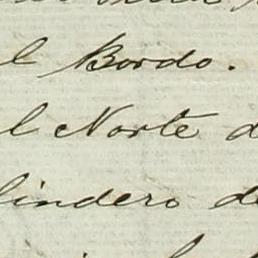 l Bordo.
l Norte d
lindero de